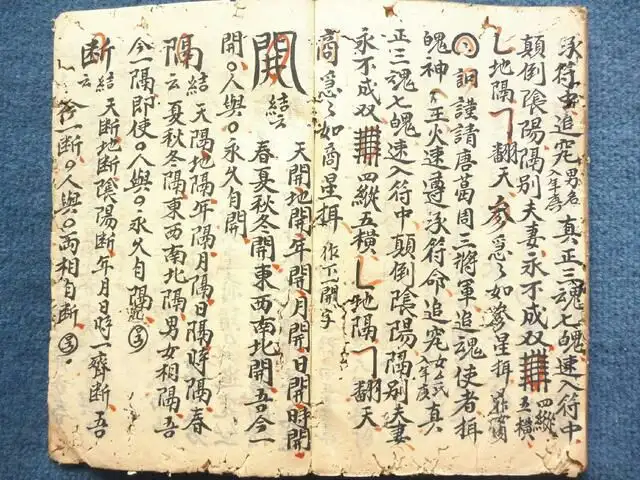 承符中追冤男名入年庚真正三魂七魄速入符中
顛倒陰陽隔別夫妻永不成双四縱五横
乚地隔㇕翻天參急〻如參星揖
詞謹請唐葛周三將軍追魂使者揖
魄神王火速尊承符命追冤女士氏入年庚真
正三魂七魄速入符中顛倒陰陽隔別夫妻
永不成双四縱五横乚地隔㇕翻天
商急〻如商星揖作丁開字
天開地開年開月開日開時開
開結云春夏秋冬開東西南北開吾今一
開〇人與〇永久自開
天隔地隔年隔月隔日隔時隔春
隔結云夏秋冬隔東西南北隔男女相隔吾
今一隔即使〇人與〇永久自隔
断結云天断地断陰陽断年月日時一齊断吾
今一断〇人與〇兩相自断